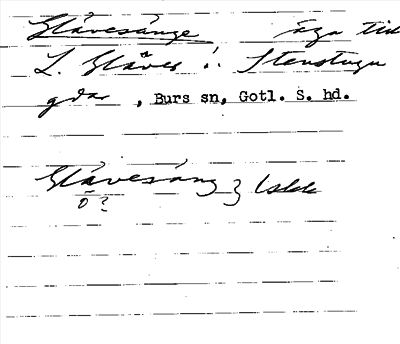 Glävesänge äga tid
L. Gläves i. Stenstugu
gdar, Burs sn, Gotl. S. hd.
Glävesäng }
ö ?